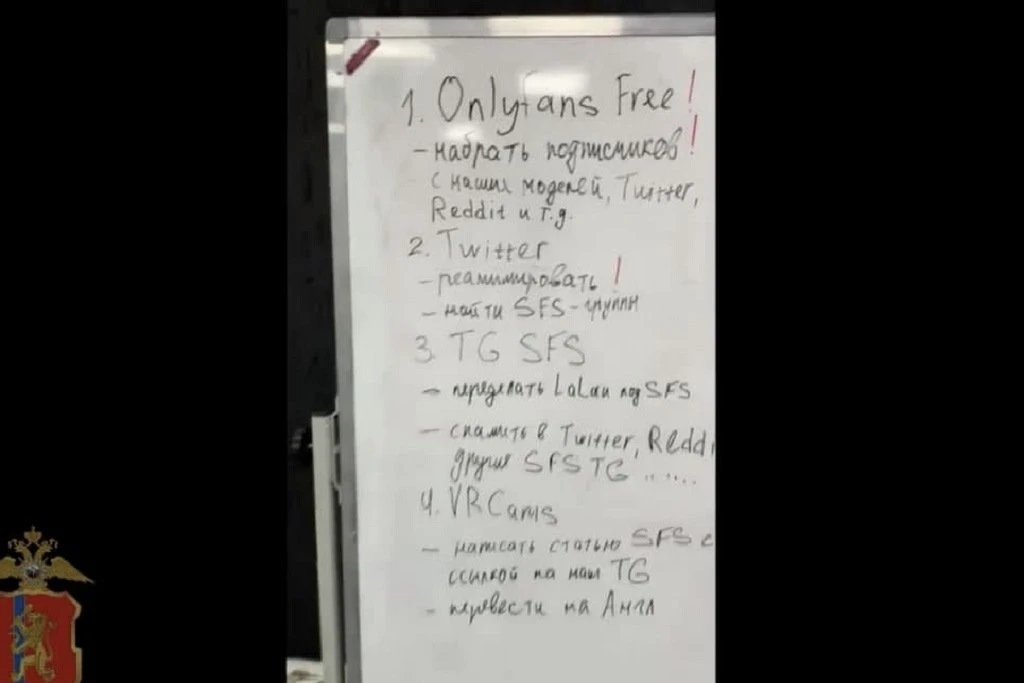 1. Onlyfans Free!
- набрать подписчиков!
с наших моделей, Twitter,
Reddit и т.д.
2. Twitter
- реанимировать!
- найти SFS-группы
3. TG SFS
- переделать LaLan под SFS
- спамить в Twitter, Reddi
другие SFS TG ......
4. VRCams
- написать статью SFS с
ссылкой на наш TG
- перевести на Англ